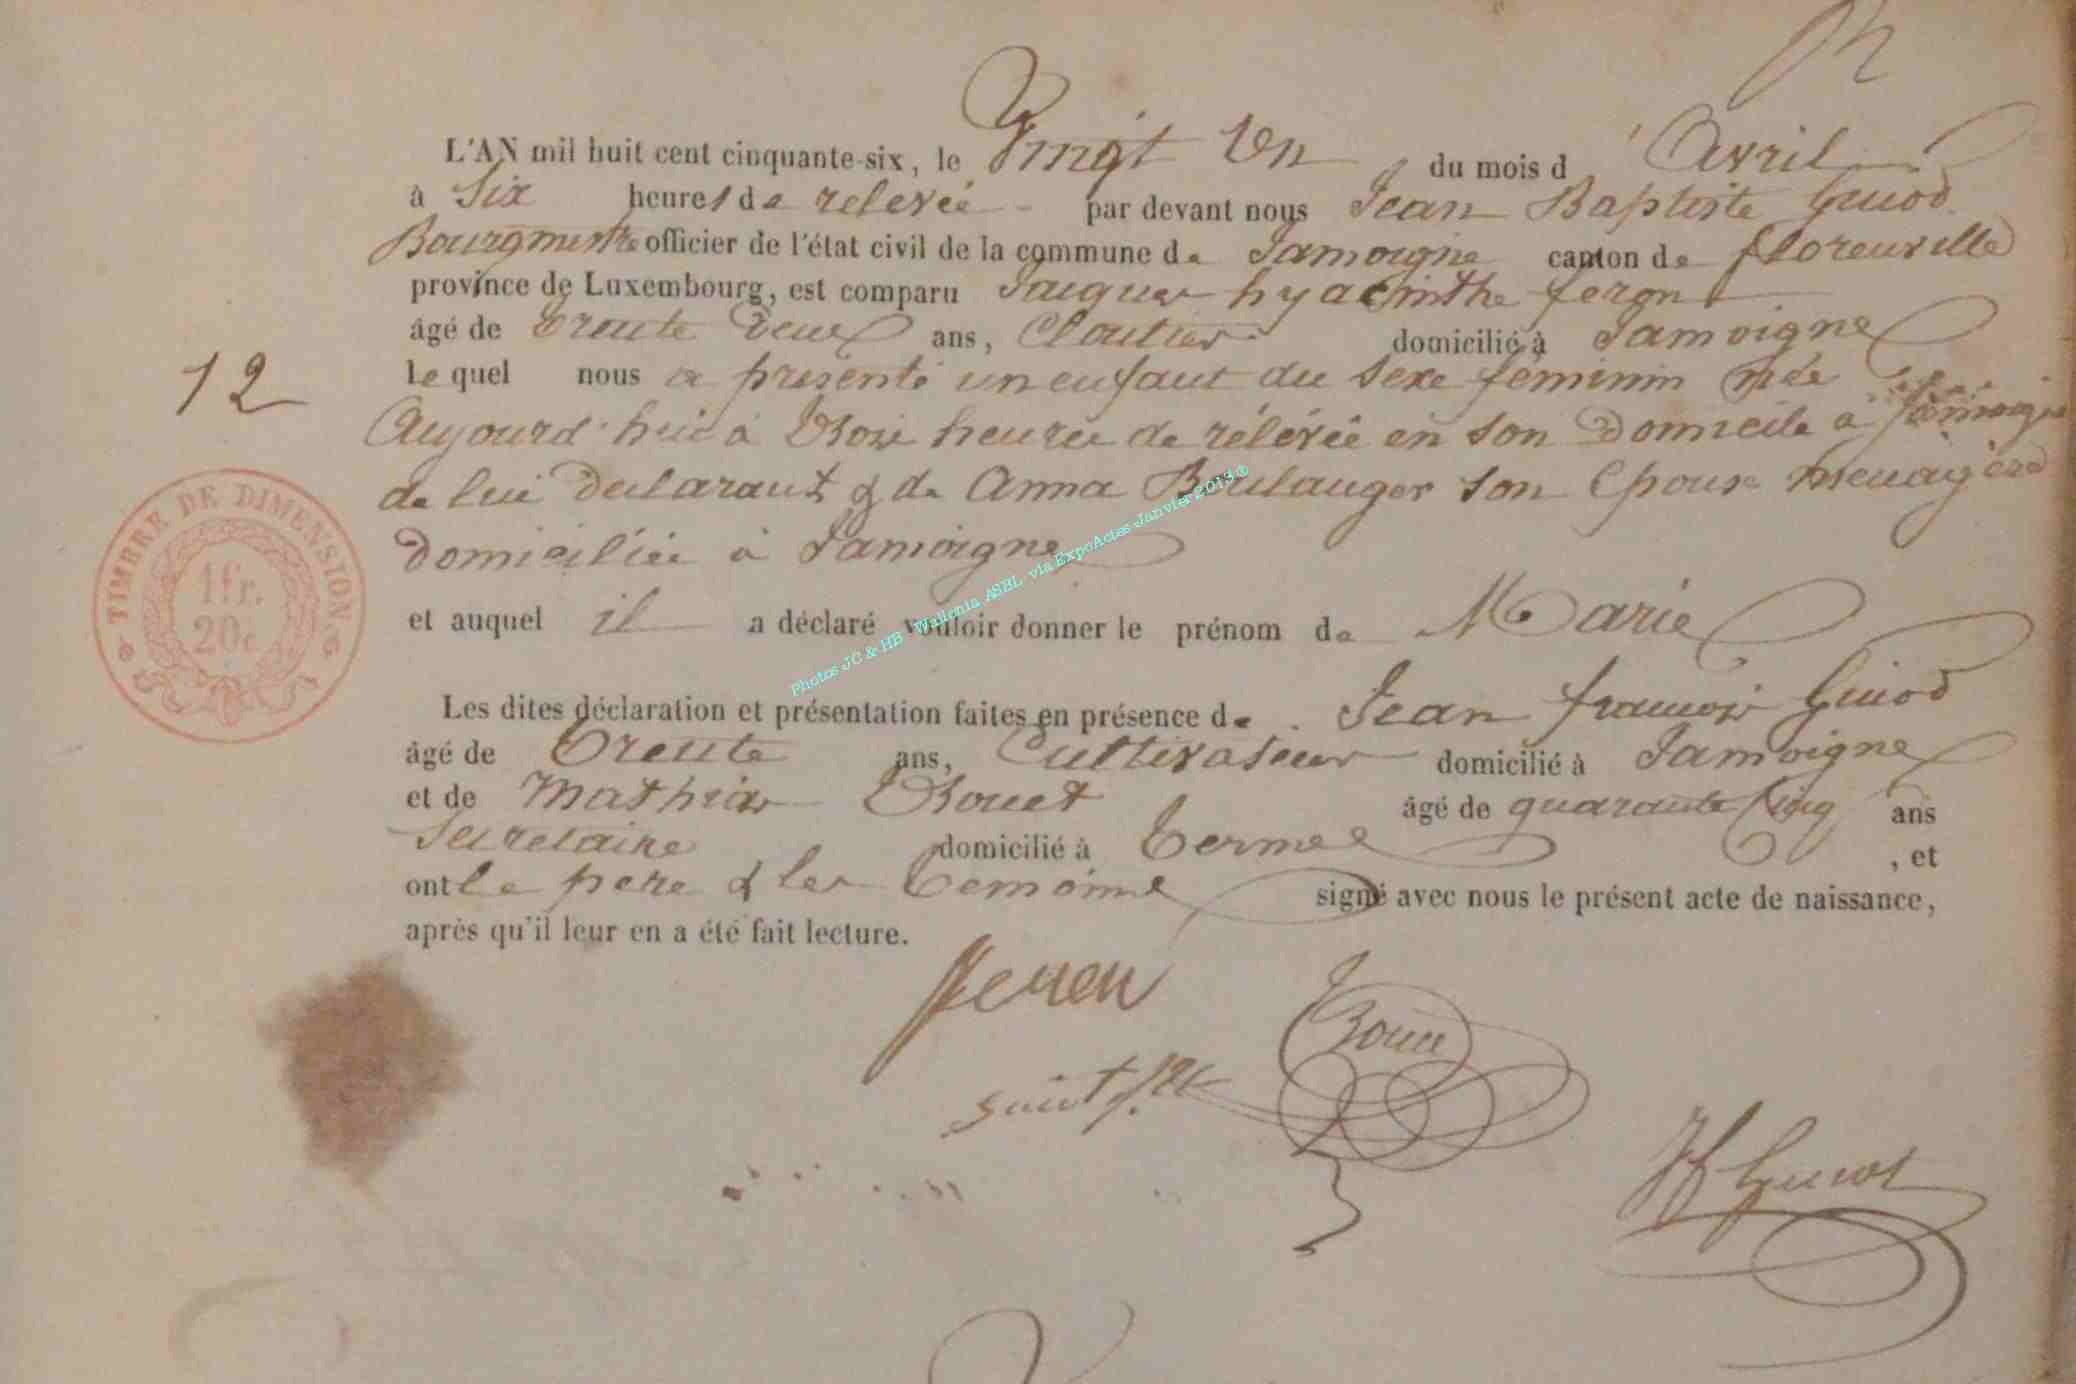 L'AN mil huit cent cinquante-six, le Vingt Un du mois d'Avril
à Six heures de relevée par devant nous Jean Baptiste Guiod
Bourgmestre officier de l'état civil de la commune de Jamoigne canton de florenville
province de Luxembourg, est comparu Jacques hyacinthe feron
âgé de trente Deux ans, Cloutier domicilié à Jamoigne
12
le quel nous a présenté un enfant du Sexe féminin née
Aujourd'hui à trois heures de rélévée en son Domicile à Jamoigne
de lui déclarant & de Anna Boulanger son Epouse menagère
domiciliée à Jamoigne
TIMBRE DE DIMENSION
1fr.
20c.
et auquel il a déclaré vouloir donner le prénom de Marie
Les dites déclaration et présentation faites en présence de Jean françois Guiod
âgé de trente ans, Cultivateur domicilié à Jamoigne
et de Mathias Rouet âgé de quarante Cinq ans
Secretaire domicilié à termes , et
ont le pere & les temoins signé avec nous le présent acte de naissance,
après qu'il leur en a été fait lecture.
feron
Guiot
Photos JC & HB Wallonia ASBL via ExpoActes Janvier 2013 ®